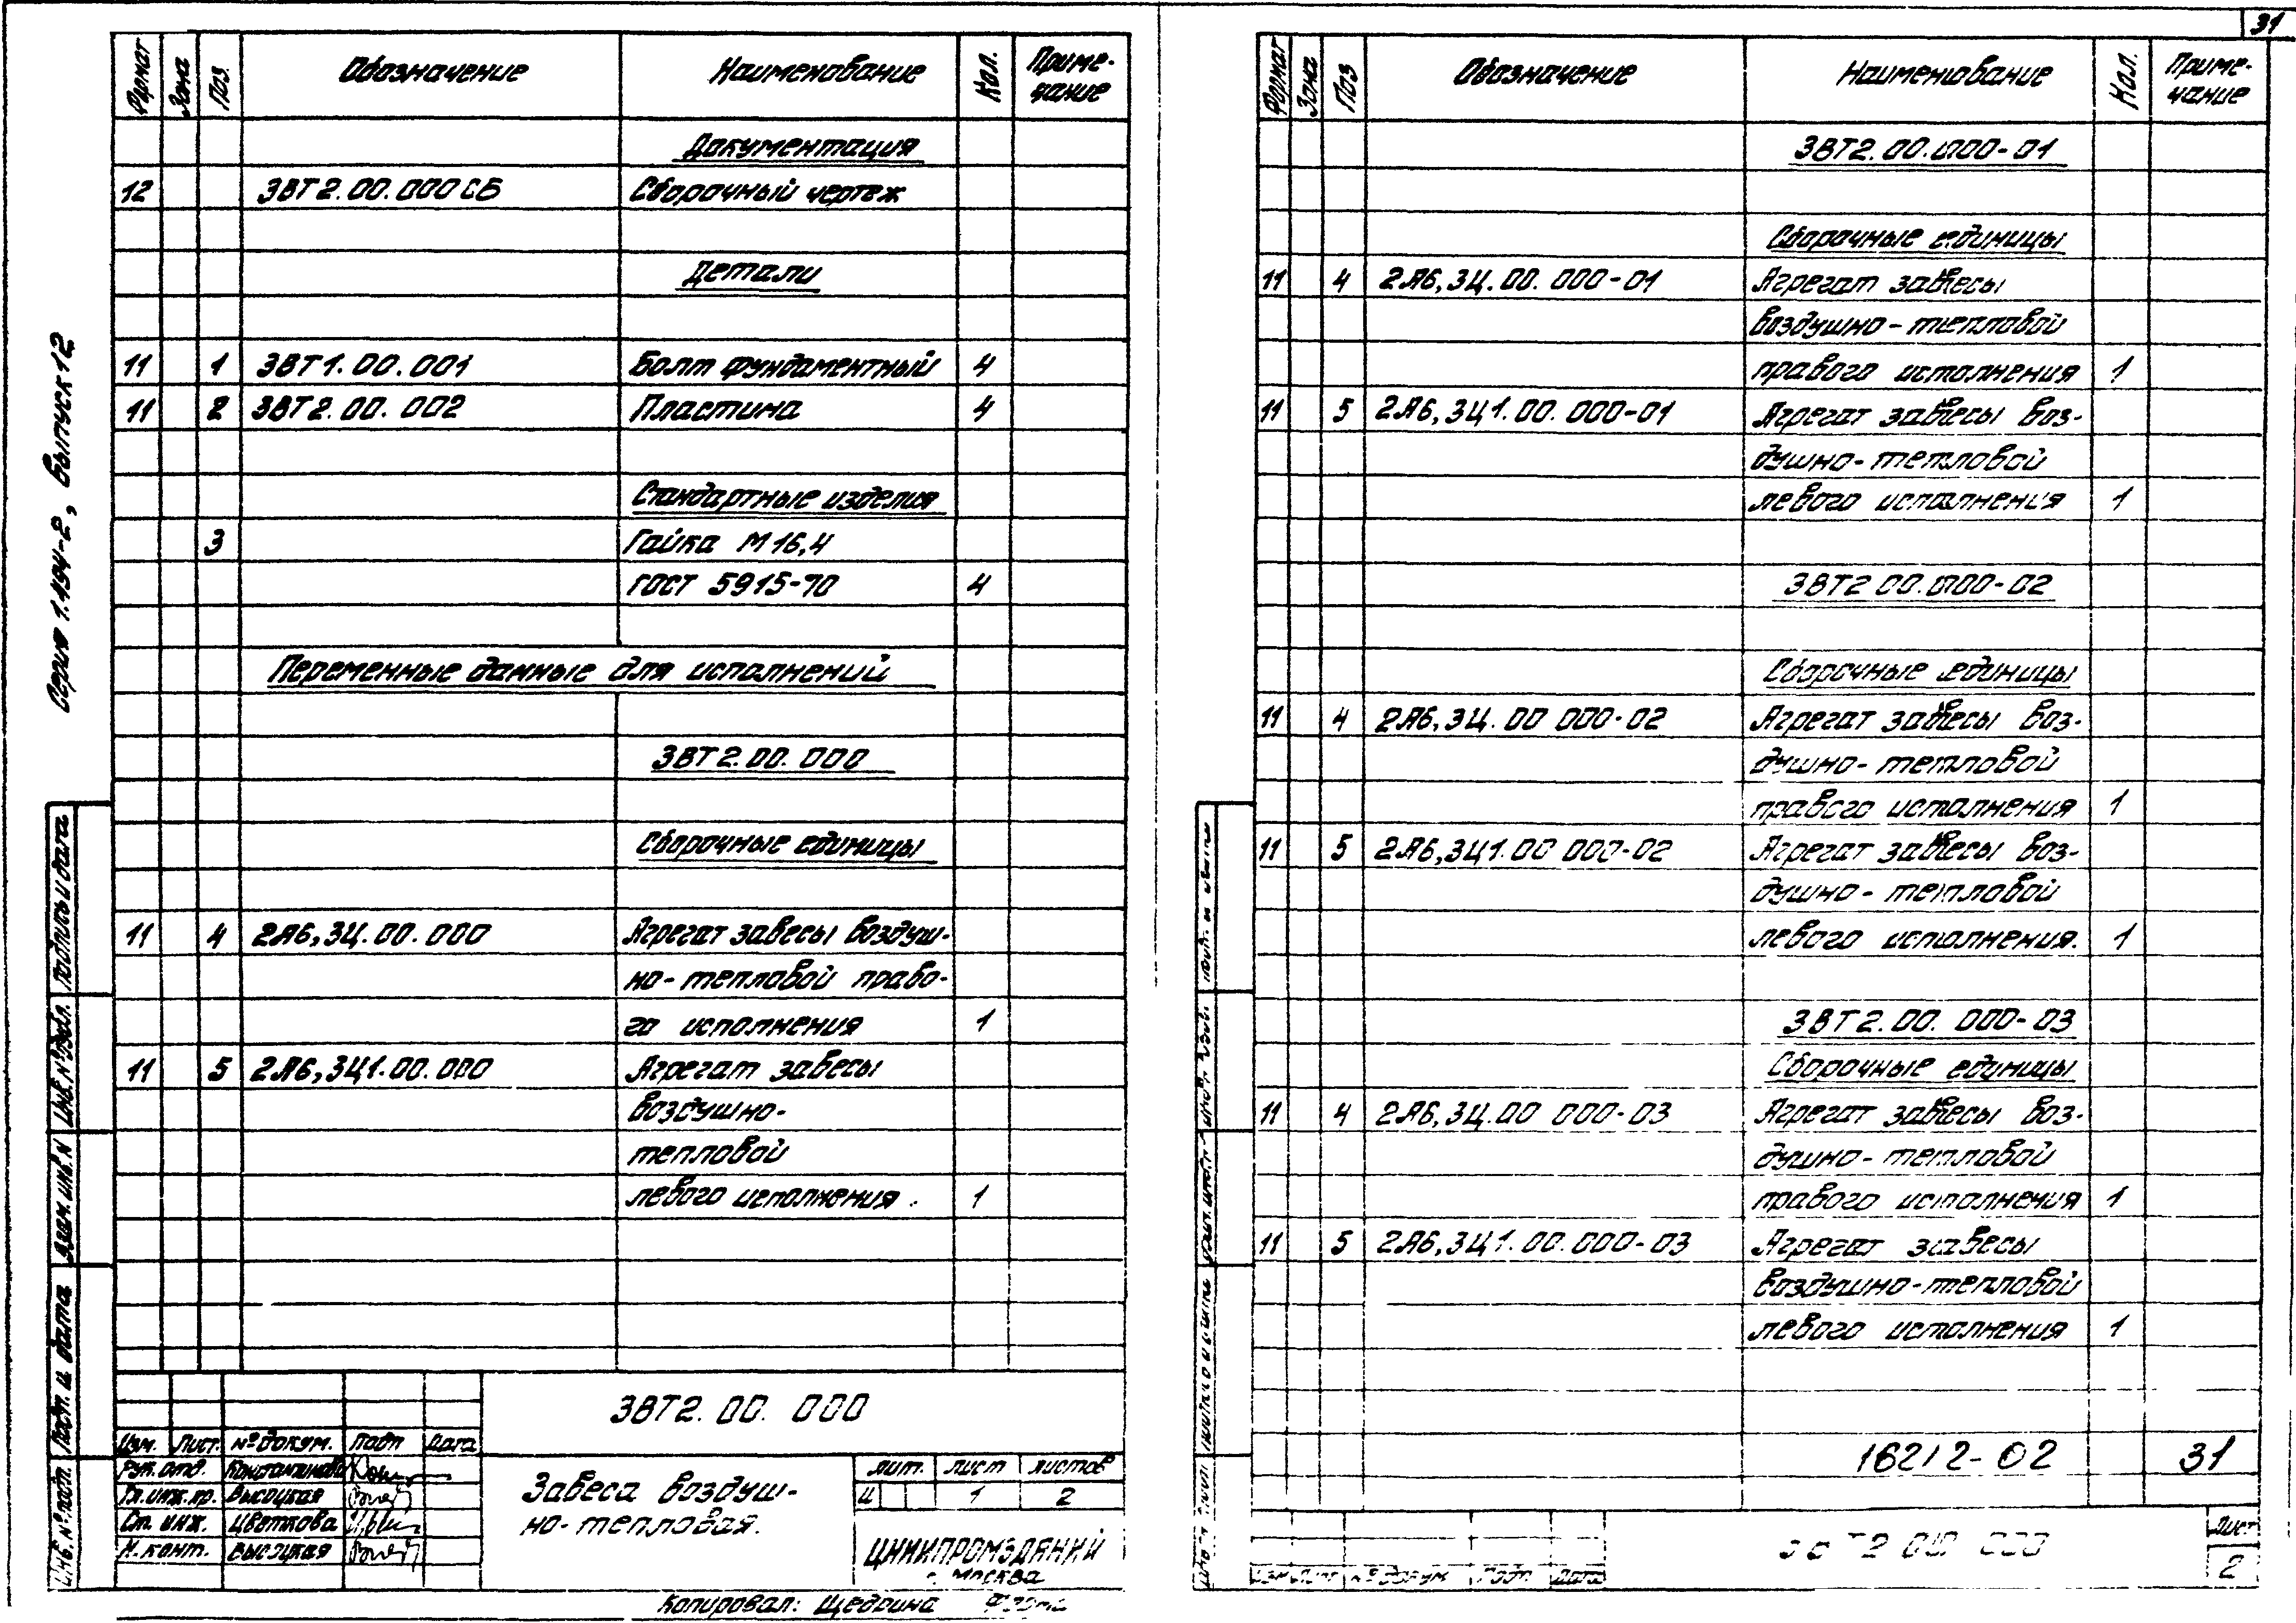 31
Серия 1.494-2, выпуск 12
Формат Зона Поз. Обозначение Наименование Кол. Приме-
чание
Документация
12 ЗВТ2.00.000СБ Сборочный чертеж
Детали
11 1 ЗВТ1.00.001 Болт фундаментный 4
11 2 ЗВТ2.00.002 Пластина 4
Стандартные изделия
3 Гайка М16,4
ГОСТ 5915-70 4
Переменные данные для исполнений
ЗВТ2.00.000
Сборочные единицы
11 4 2А6,3Ц.00.000 Агрегат завесы воздуш-
но-тепловой право-
го исполнения 1
11 5 2А6,3Ц1.00.000 Агрегат завесы
воздушно-
тепловой
левого исполнения. 1
ЗВТ2.00.000
Изм. Лист. № докум. Подп Дата
Рук. отд. Константинова
Гл. инж. пр. Высоцкая
Ст. инж. Цветкова
Н. конт. Высоцкая
Завеса воздуш-
но-тепловая.
Лит. Лист Листов
И 1 2
ЦНИИПРОМЗДАНИЙ
г. Москва
Копировал: Щедрина
Инв. № подл. Подп. и дата Взам. инв. № Инв. № дубл. Подпись и дата
Формат Зона Поз Обозначение Наименование Кол. Приме-
чание
ЗВТ2.00.000-01
Сборочные единицы
11 4 2А6,3Ц.00.000-01 Агрегат завесы
воздушно-тепловой
правого исполнения 1
11 5 2А6,3Ц1.00.000-01 Агрегат завесы воз-
душно-тепловой
левого исполнения 1
ЗВТ2.00.000-02
Сборочные единицы
11 4 2А6,3Ц.00 000-02 Агрегат завесы воз-
душно-тепловой
правого исполнения 1
11 5 2А6,3Ц1.00 000-02 Агрегат завесы воз-
душно-тепловой
левого исполнения. 1
ЗВТ2.00.000-03
Сборочные единицы
11 4 2А6,3Ц.00 000-03 Агрегат завесы воз-
душно-тепловой
правого исполнения 1
11 5 2А6,3Ц1.00.000-03 Агрегат завесы
воздушно-тепловой
левого исполнения 1
16212-02 31
Лист
2
№ докум Подп Дата